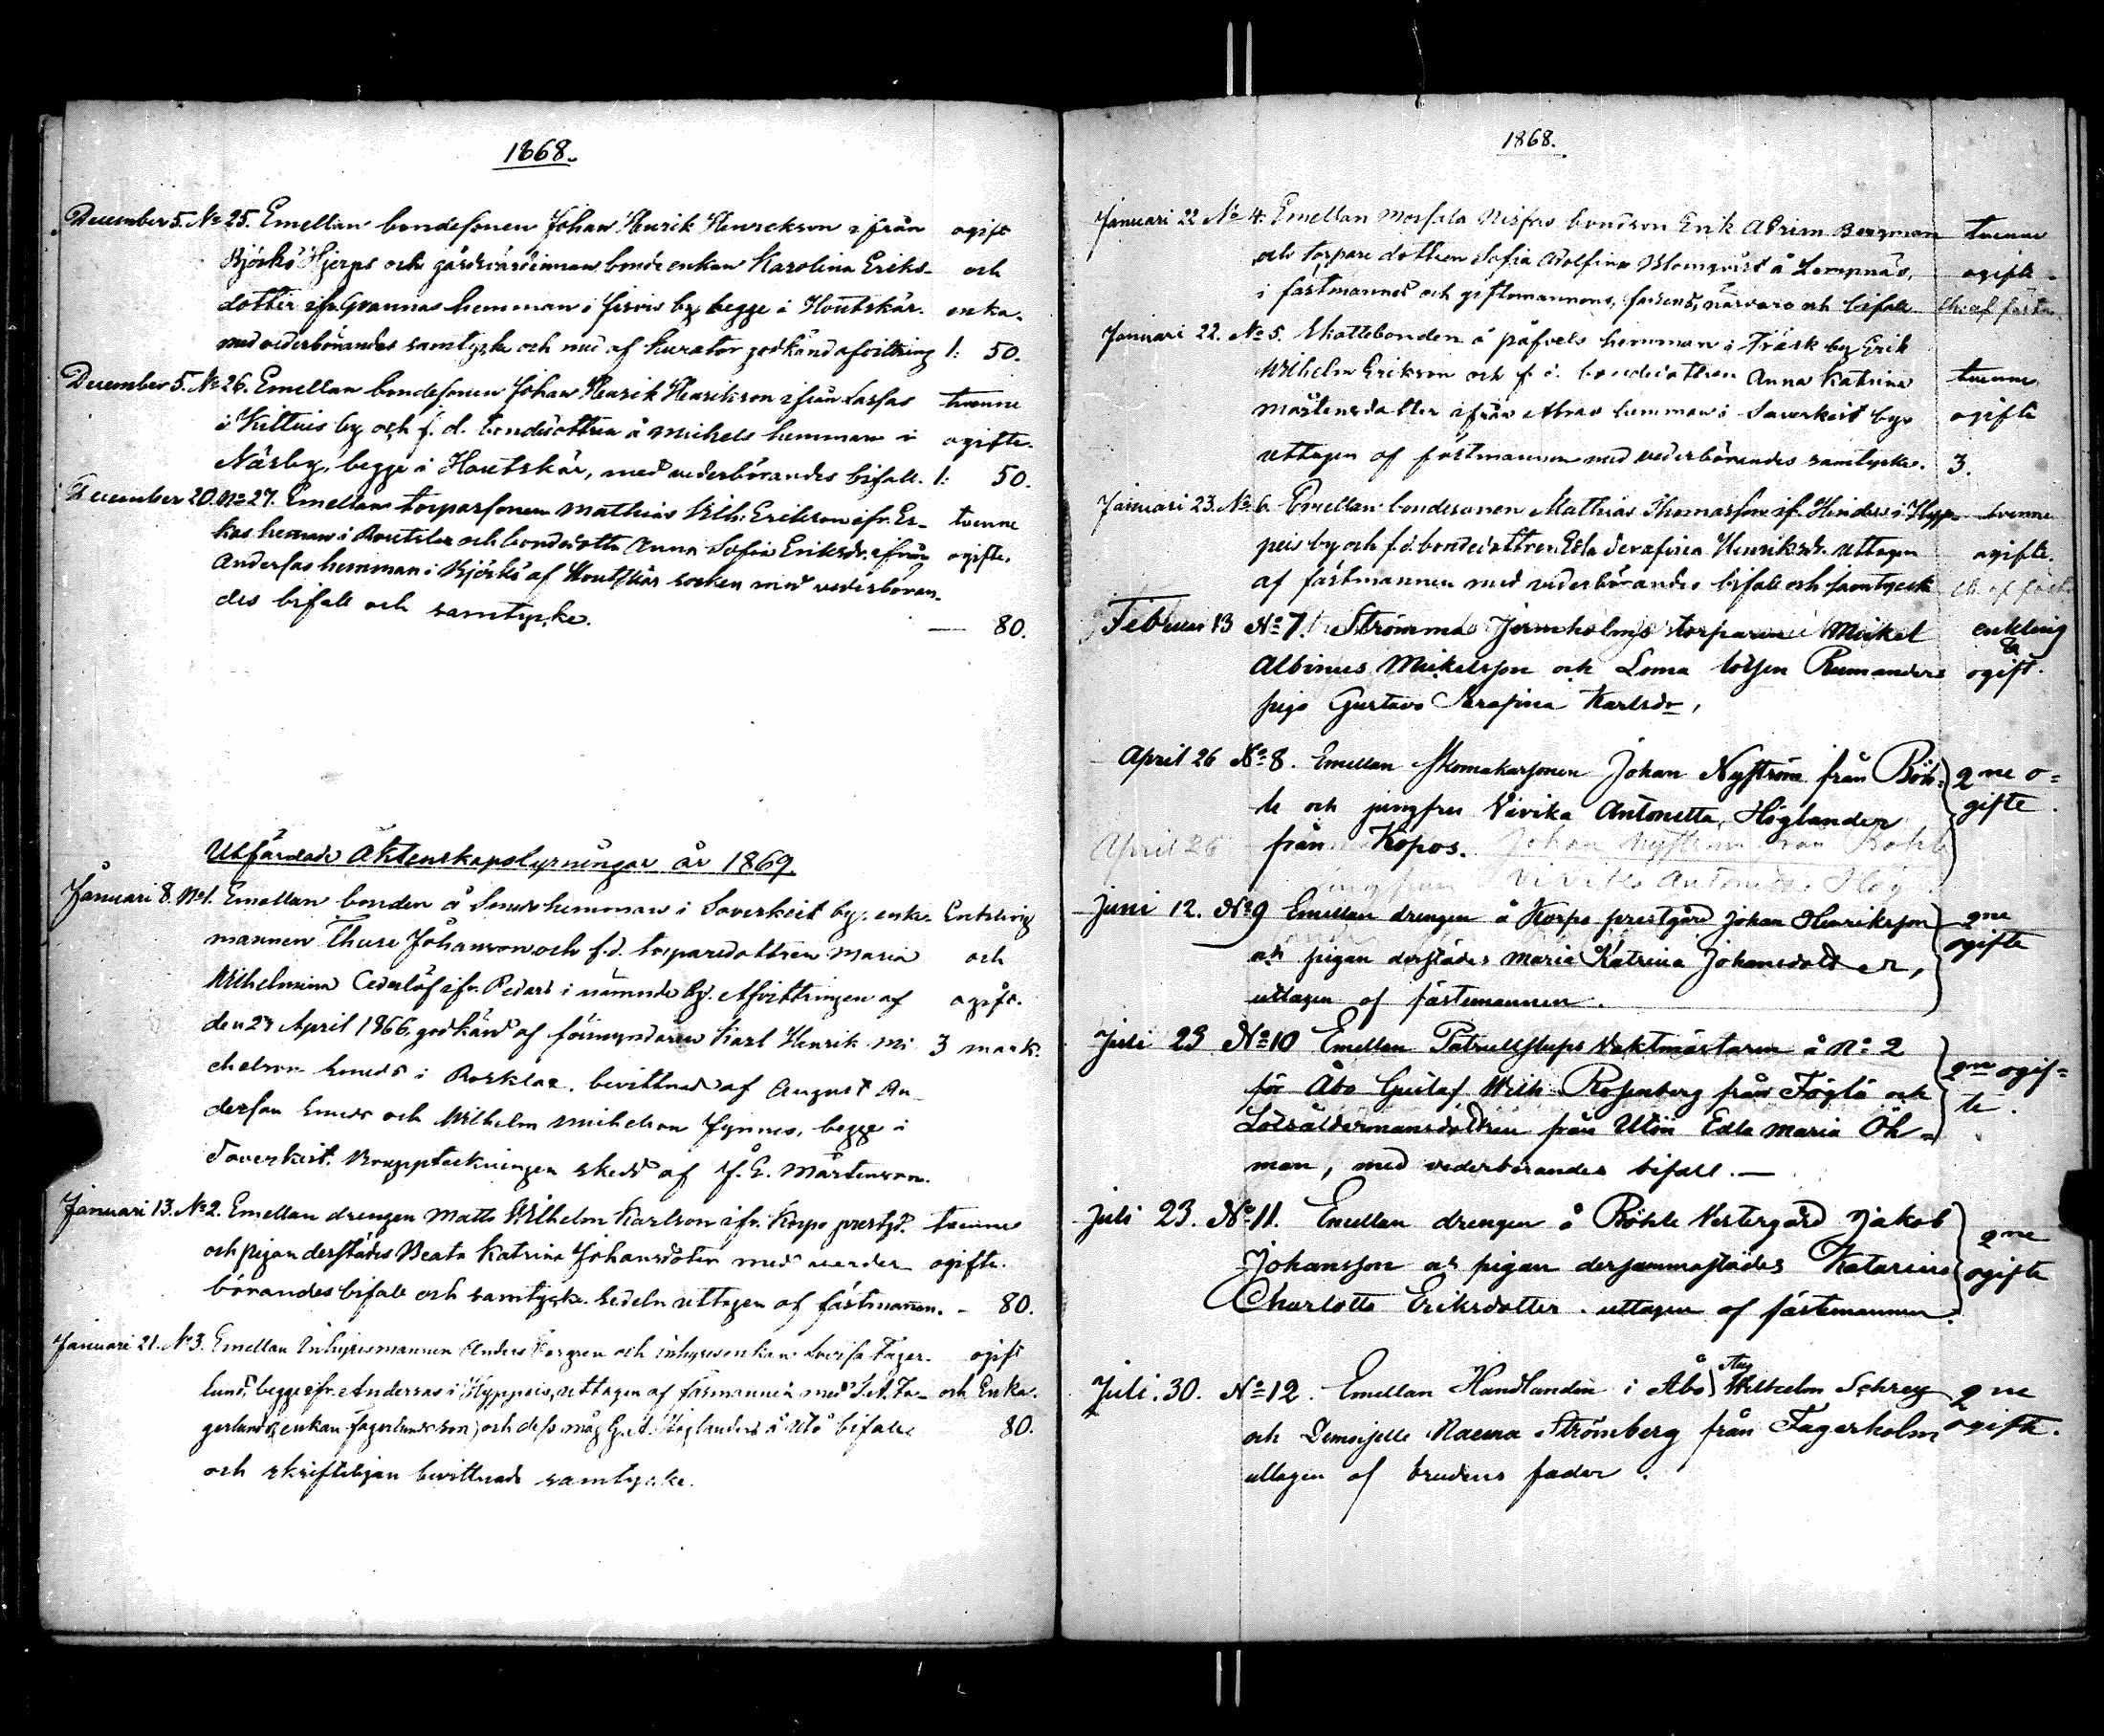 1868.
December 5. No 25. Emellan bondesonen Johan Henrik Henrekson ifrån ogift
Björkö Hjerps och gårdvärdinnan bonde enkan Karolina Eriks- och
dotter ifr. Grannas hemman i by begge i Houtskär. enka.
med vederbörandes samtycke och med af kurator godkänd afvittring 1: 50.
December 5. No 26. Emellan bondesonen Johan Henrik Henrikson ifrån Larsas tvenne
i Kittuis by och f. d. bondedottren å Michels hemman i ogifte.
Näsby, begge i Houtskär, med vederbörandes bifall. 1: 50.
December 20. No 27. Emellan torparsonen Mathias Vilh: Erikson ifr. Er- tvenne
kas heman i Roslax och bondedottr Anna Sofia Eriksdr. ifrån ogifte.
Andersas hemman i Björkö af Houtskär socken med vederböran-
des bifall och samtycke. — 80.
Utfärdade Äktenskapslysningar år 1869.
Januari 8. No 1. Emellan bonden å hemman i Saverkeit by, enke- Enkling
mannen Thure Johanson och f.d. torparedottren Maria och
Wilhelmina Cederlöf ifr. Pedars i nämnde by. Afvittringen af ogift.
den 27 April 1866, godkänd af förmyndaren Karl Henrik Mi 3 mark.
chelson Smeds i Rosklax. bevittnad af August An-
derson och Wilhelm Michelson Fynnes, begge i
Saverkeit. Bouppteckningen skedd af J. E. Mårtenson.
Januari 13. No 2. Emellan drengen Matts Wilhelm Karlson ifr. Korpo prestgd. tvenne
och pigan derstädes Beata Katrina Johansdoter med veder- ogifte.
börandes bifall och samtycke. Sedeln uttagen af fästmannen. - 80.
Januari 21. No 3. Emellan Inhyresmannen Anders och inhyresenkan Lovisa Fager- ogift
lund, begge ifr. Andersas i Hyppeis, uttagen af fäsmannen med Fa- och Enka.
gerlund (enkan Fagerlunds son) och dess måg Höglanders å Utö bifall 80.
och skriftligen bevittnade samtycke.
1868.
Januari 22 No 4. Emellan Mosfala Nisfas bondson Erik Adrim Bergman tvenne
och torpare dottren Sofia Adolfina Blomqvist å Lempnäs, ogifte.
i fästmannes och giftomannens, farens, närvaro och bifall af fästm
Januari 22. No 5. Skattebonden å påfvels hemman i Träsk by Erik
Wilhelm Erikson och f. d. bondedottren Anna Katrina tvenne
Mårtensdotter ifrån hemman i Saverkeit by. ogifte
uttagen af fästmannen med vederbörandes samtycke. 3.
Januari 23. No 6. Emellan bondesonen Mathias Thomasson if. Hindersi Hyp- tvenne
peis by och f.d. bondedottren Edla Serafina Henriksdr. uttagen ogifte.
af fästmannen med vederbörandes bifall och samtycke af fästm
Februar 13 No 7. Strömma Jermholms torparen Mickel enkling
Albinus Mickelsson och Loma lotsen Rumanders & ogift.
piga Gustava Serafina Karlsdr,
April 26 No 8. Emellan Skomakarsonen Johan Nyström från Böh- 2ne o-
le och jungfru Vivika Antonetta Höglander gifte.
April 26 från Kopos. Johan Nyström från Böhle
jungfrun Vivika Antonetta Hög
Juni 12. No 9 Emellan drengen å Korpo prestgård Johan Henriksson 2ne
och pigan derstädes Maria Katrina Johansdotter, ogifte
uttagen af fästemannen.
Juli 23 No 10 Emellan Patrullslups Vaktmästaren å No 2
för Åbo Gustaf Wilh. Rosenberg från Föglö och 2ne ogif-
Lotsåldermansdottren från Utön Edla Maria Öh- te.
man, med vederbörandes bifall. —
Juli 23. No 11. Emellan drengen å Böhle Vestergård Jakob
Johansson och pigan dersammastädes Katarina 2ne ogifte
Charlotta Eriksdotter. uttagen af fästemannen.
Juli. 30. No 12. Emellan Handlanden i Åbo Aug Wilhelm Schrey 2ne
och Demoiselle Naema Strömberg från Fagerholm ogifte.
uttagen af brudens fader.